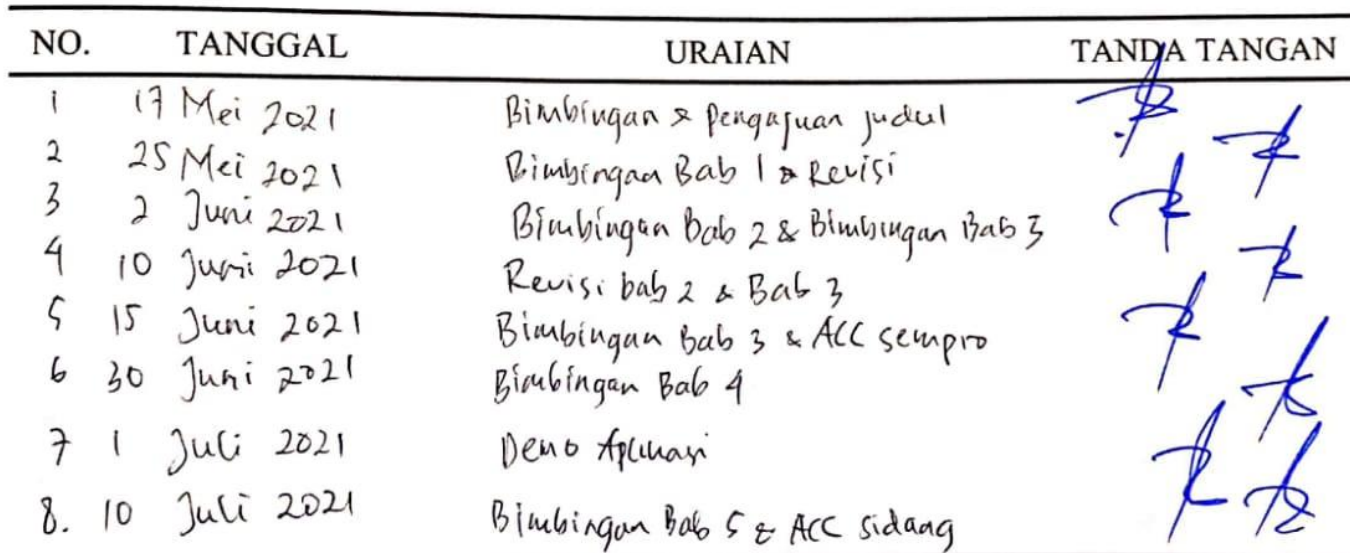 NO. TANGGAL URAIAN TANDA TANGAN
1 17 Mei 2021 Bimbingan & Pengajuan judul
2 25 Mei 2021 Bimbingan Bab 1 & Revisi
3 2 Juni 2021 Bimbingan Bab 2 & Bimbingan Bab 3
4 10 Juni 2021 Revisi bab 2 & Bab 3
5 15 Juni 2021 Bimbingan Bab 3 & ACC sempro
6 30 Juni 2021 Bimbingan Bab 4
7 1 Juli 2021 Demo Aplikasi
8. 10 Juli 2021 Bimbingan Bab 5 & ACC sidang